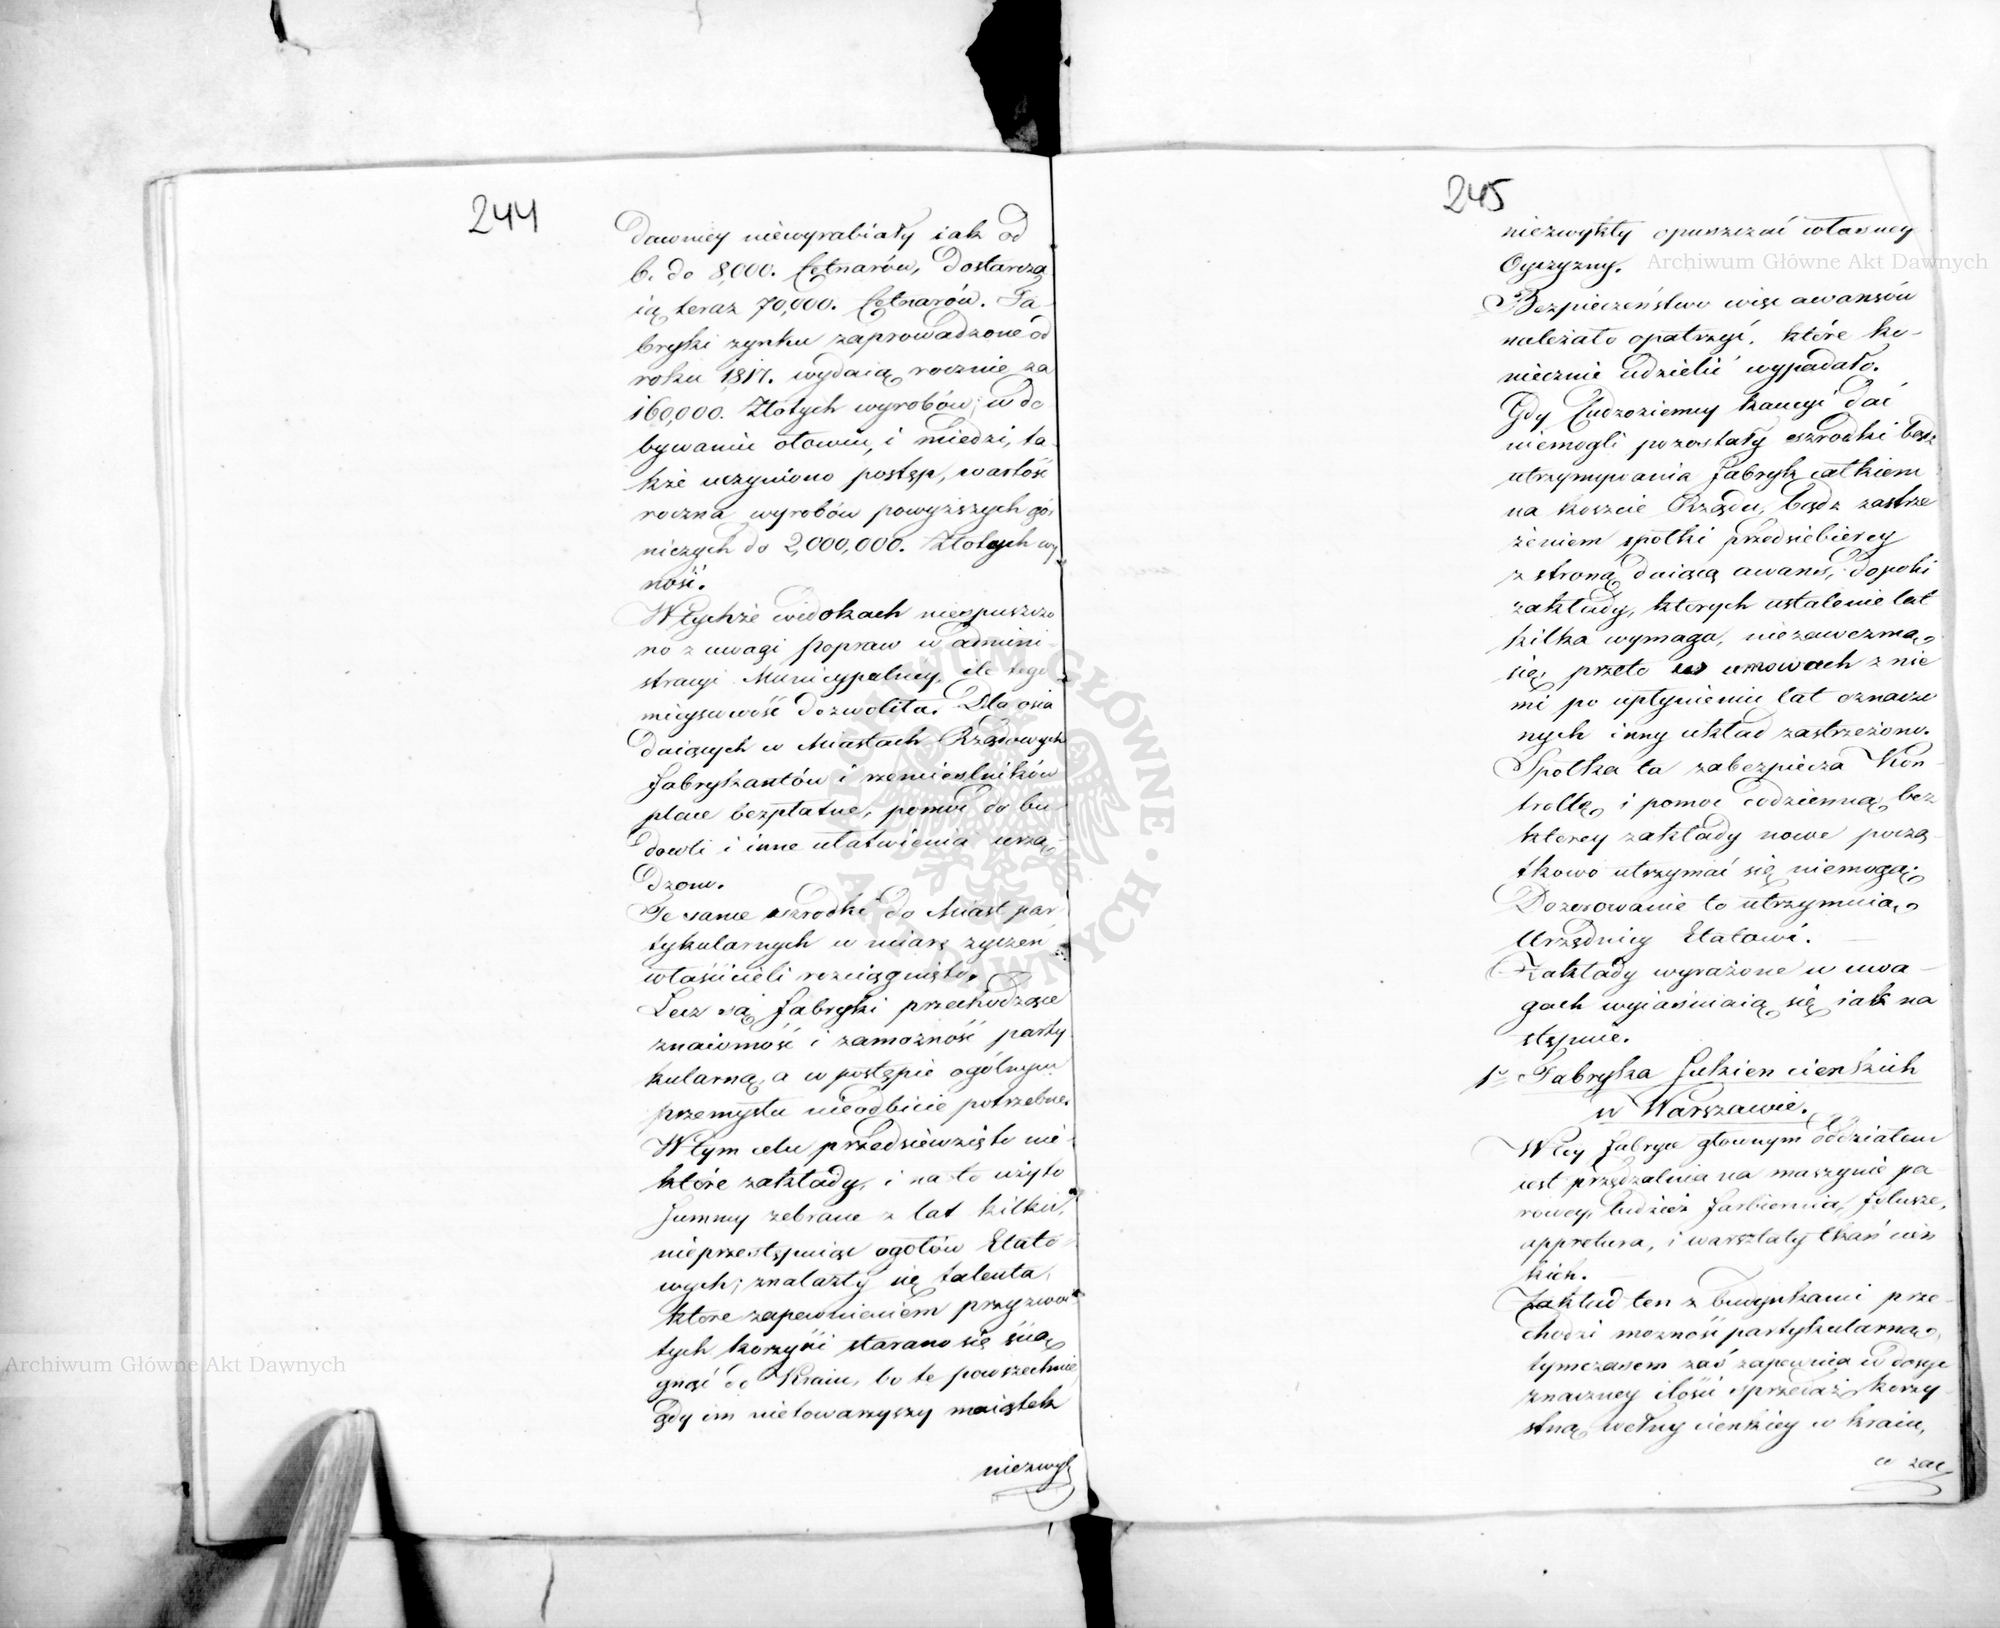 244
dawniey niewyrabiały iak od
6. do 8,000. Cetnarów, dostarcza
ią teraz 70,000. Cetnarów. Fa-
bryki zynku zaprowadzone od
roku 1817. wydaią rocznie za
160,000. Złotych wyrobów; w do
bywaniu ołowiu, i miedzi, ta-
kże uczyniono postęp, wartość
roczna wyrobów powyższych gór
niczych do 2,000,000. Złotych wy
nosi.
W tychże widokach nieopuszczo
no z uwagi popraw w admini-
stracyi Municypalney, ile tego
mieyscowość dozwoliła. Dla osia
daiących w Miastach Rządowych
fabrykantów i rzemieślników
place bezpłatne, pomoc do bu
dowli i inne ułatwienia urzą-
dzono.
Te same szrodki do Miast par
tykularnych w miarę życzeń
właścicieli rozciągnięto.
Lecz są fabryki przechodzące
znaiomość i zamożność party
kularną, a w postępie ogólnym
przemysłu nieodbicie potrzebne.
W tym celu przedsięwzięto nie-
które zakłady, i na to użyto
summy zebrane z lat kilku,
nieprzestępuiąc ogołów Etato-
wych; znalazły się talenta,
które zapewnieniem przyzwoi-
tych korzyści starano się ścią
gnąć do Kraiu, bo te powszechnie
gdy im nietowarzyszy maiątek
niezwyk
245
niezwykły opuszczać własney
Oyczyzny.
Bezpieczeństwo więc awansów
należało opatrzyć, które ko-
niecznie udzielić wypadało.
Gdy Cudzoziemcy kaucyi dać
niemogli pozostały szrodki bądz
utrzymywania fabryk całkiem
na koszcie Rządu, bądz zastrze
żeniem spółki przedsiebiercy
z stroną daiącą awans, dopoki
zakłady, których ustalenie lat
kilka wymaga, niezawezmą
się, przeto w umowach z nie
mi po upłynieniu lat oznaczo
nych inny układ zastrzeżono.
Spolka ta zabezpiecza Kon-
trollę, i pomoc codzienną, bez
ktorey zakłady nowe począ-
tkowo utrzymać się niemogą.
Dozorowanie to utrzymuią
Urzędnicy Etatowi.
Zakłady wyrażone w uwa-
gach wyiaśniaią się iak na
stępuie.
1o Fabryka Sukien cienkich
w Warszawie.
W tey fabryce głownym oddziałem
iest przędzalnia na maszynie pa-
rowey, tudzież farbiernia, folusze,
appretura, i warsztaty tkań cien
kich.
Zakład ten z budynkami prze-
chodzi możność partykularną,
tymczasem zaś zapewnia w dosyć
znaczney ilości sprzedaż korzy-
stną wełny cienkiey w kraiu,
a zac
Archiwum Główne Akt Dawnych
Archiwum Główne Akt Dawnych
ARCHIWUM GŁÓWNE AKT DAWNYCH